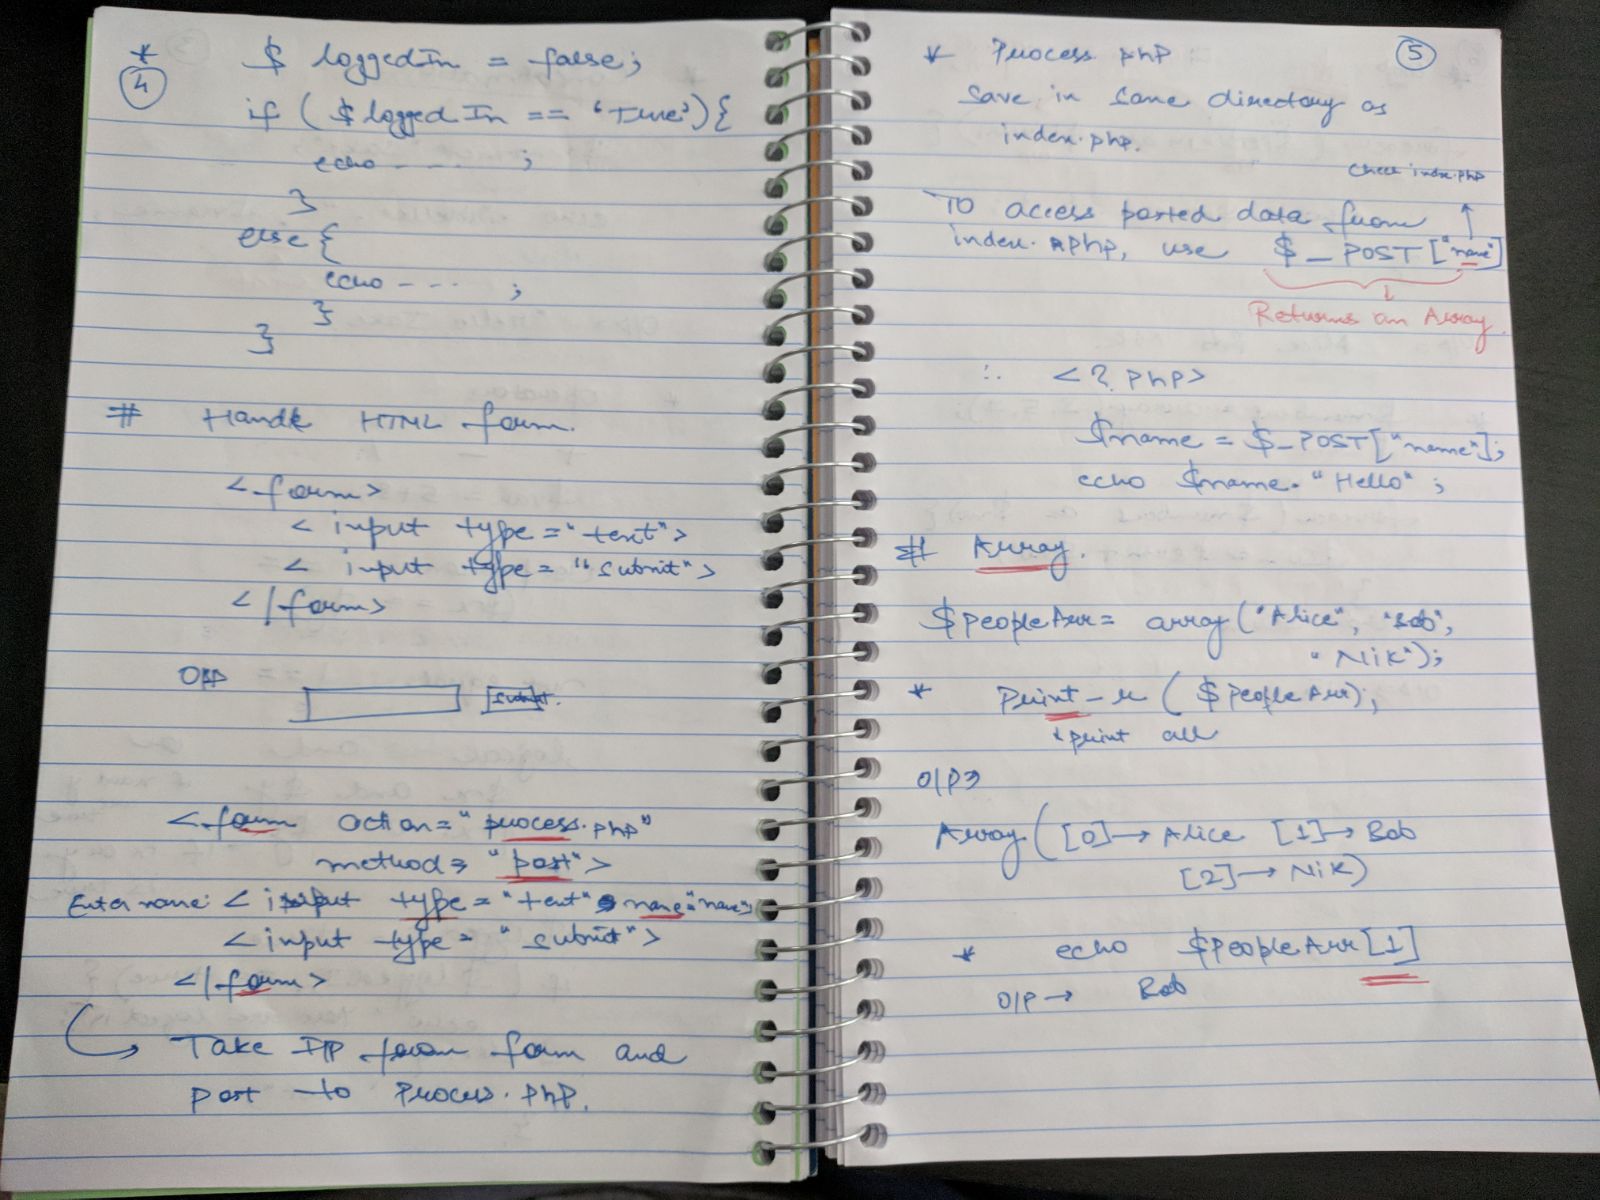 *
4
$ loggedIn = false;
if ( $ loggedIn == 'True') {
echo - - - - ;
}
else {
echo - - - - ;
}
}
# Handle HTML form.
< form>
< input type = "text">
< input type = "submit">
</form>
O/P
submit.
< form action = "process.php"
method = "post">
Enter name: < input type = "text" name = "name">
< input type = "submit">
</form>
Take I/P from form and
post to Process.php.
5
* Process php
Save in same directory as
index.php.
check index.php
To access posted data from
index.php, use $_POST ["name"]
Returns an Array.
∴ <? php>
$name = $_POST["name"];
echo $name. "Hello" ;
# Array.
$peopleArr = array ("Alice", "Bob",
"Nik");
* Print_r ( $peopleArr);
print all
O/P →
Array ( [0] → Alice [1] → Bob
[2] → Nik)
* echo $peopleArr [1]
O/P → Bob